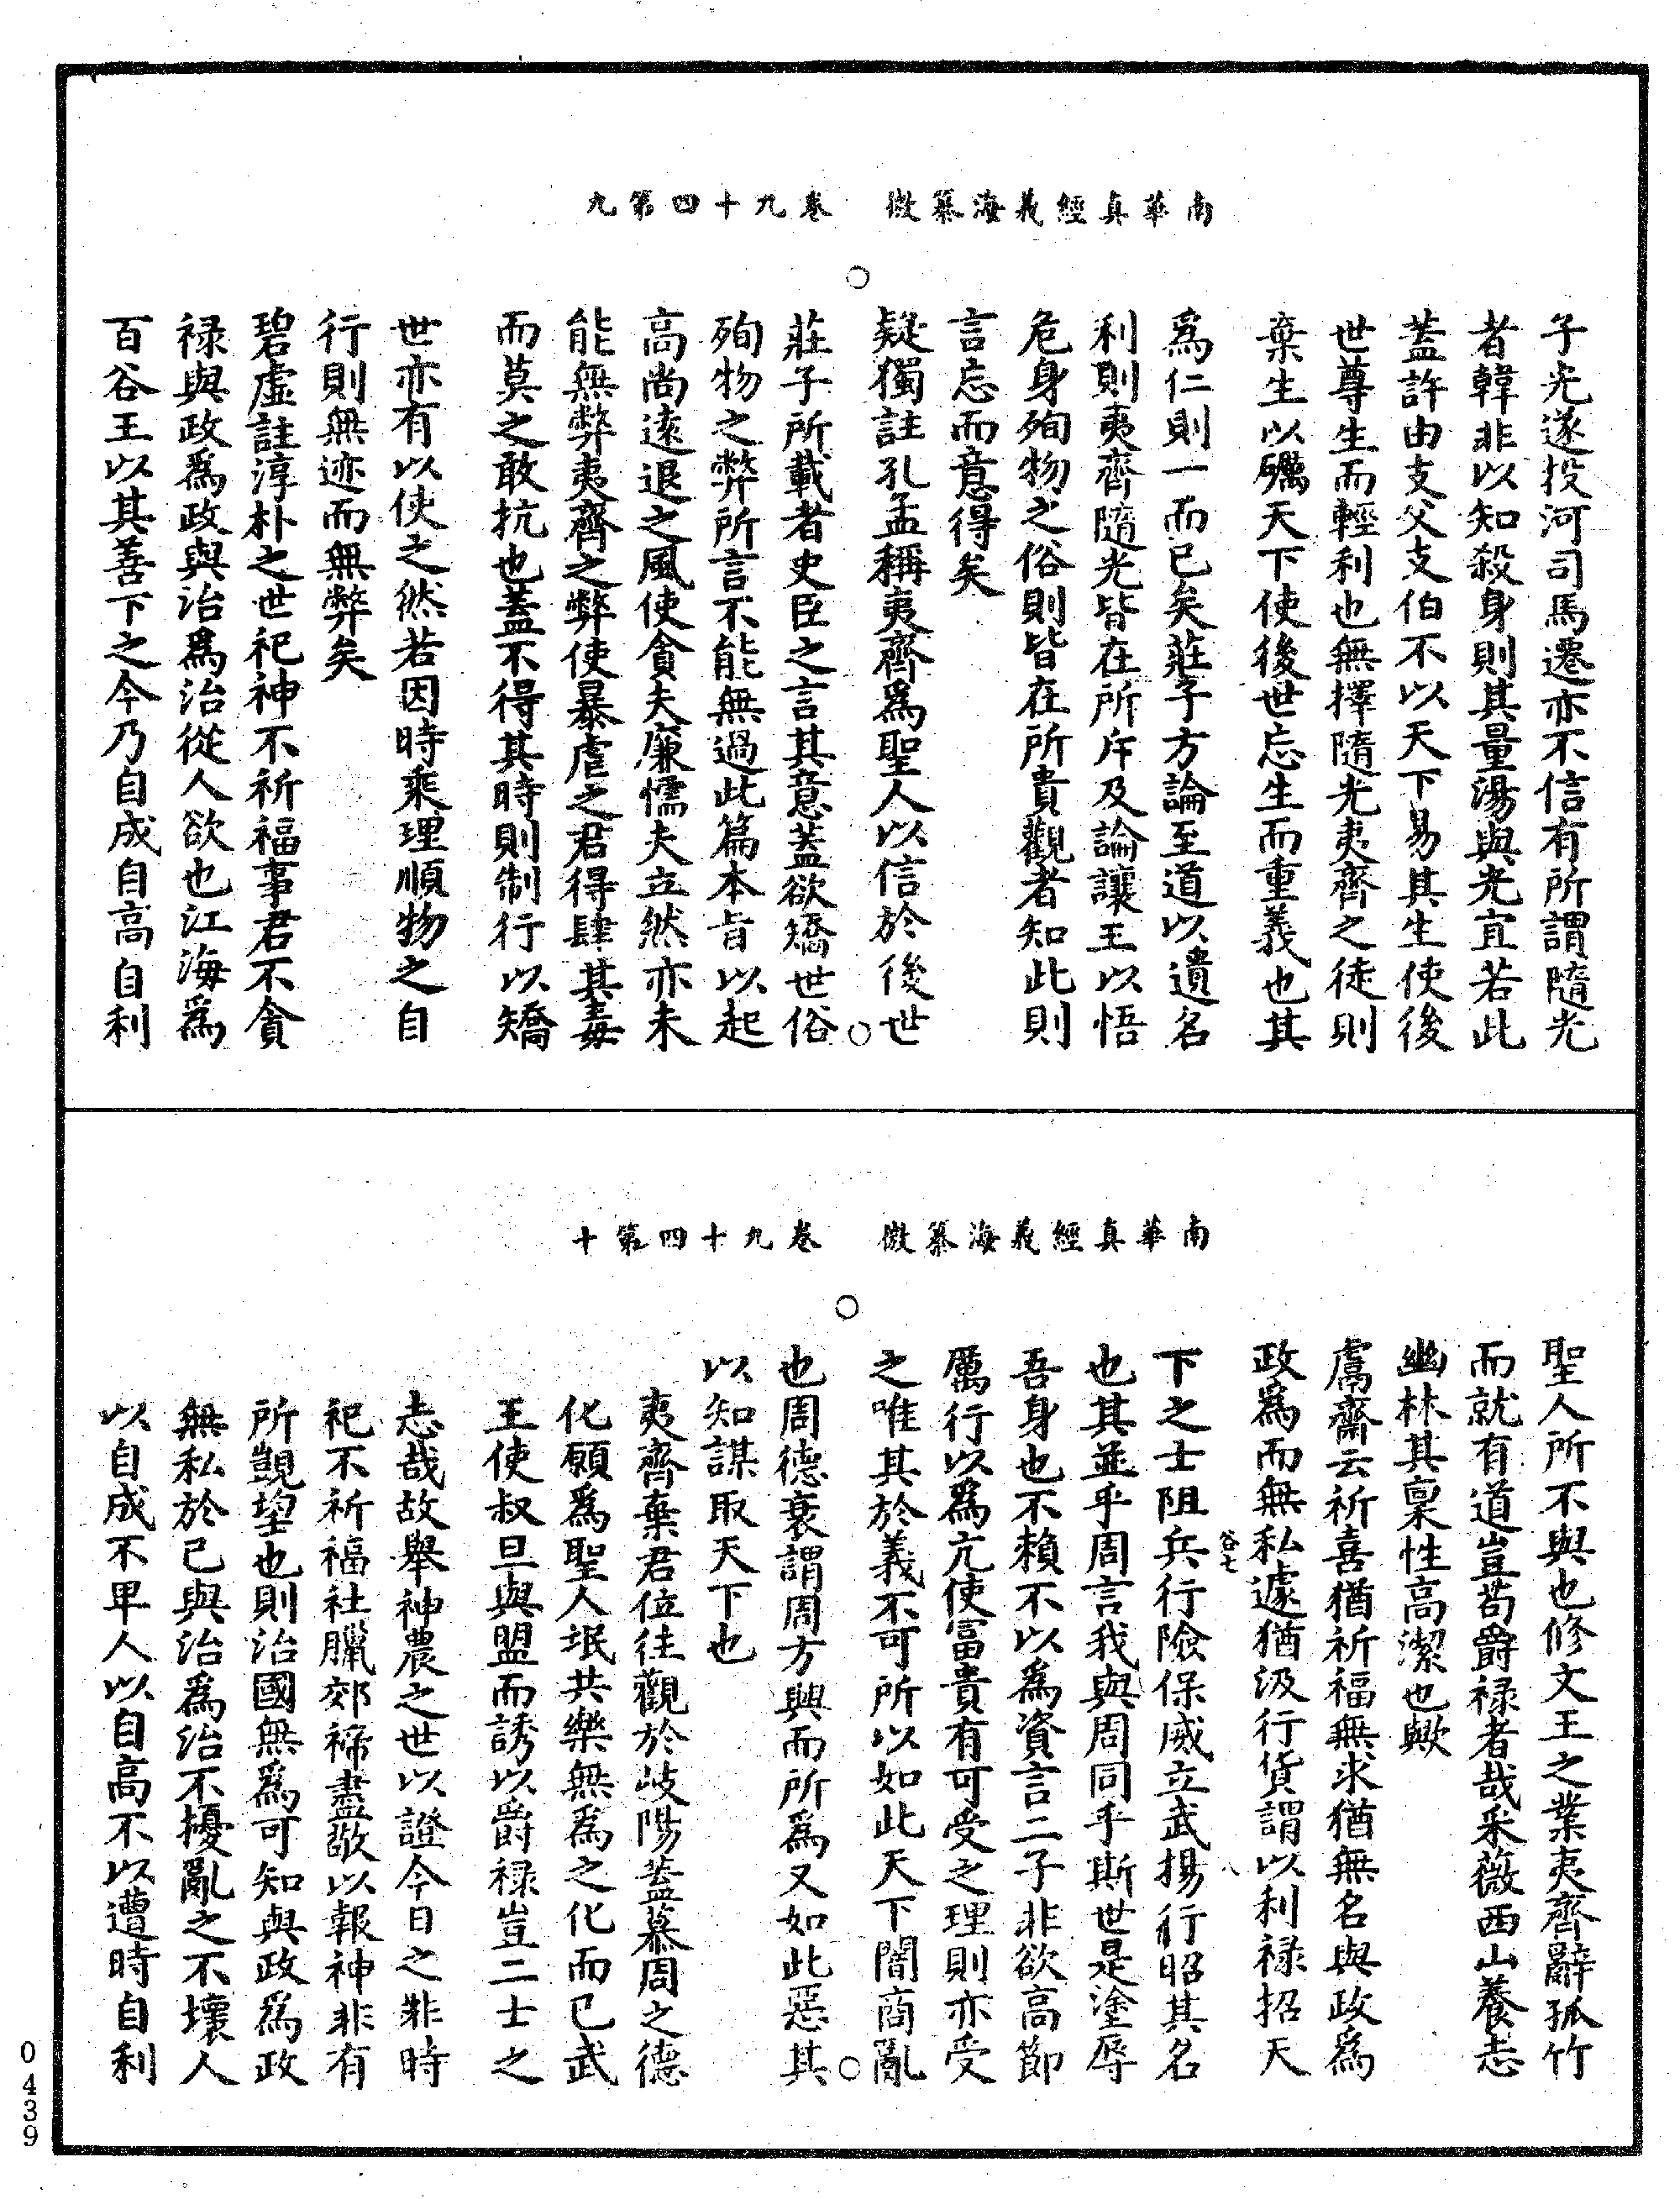 南華真經義海纂微　卷九十四第九
子光遂投河司馬遷亦不信有所謂隨光
者韓非以知殺身則其量湯與光宜若此
蓋許由支父支伯不以天下易其生使後
世尊生而輕利也無擇隨光夷齊之徒則
棄生以礪天下使後世忘生而重義也其
爲仁則一而已矣莊子方論至道以遺名
利則夷齊隨光皆在所斥及論讓王以悟
危身殉物之俗則皆在所貴觀者知此則
言忘而意得矣
疑獨註孔孟稱夷齊爲聖人以信於後世
莊子所載者史臣之言其意蓋欲矯世俗
殉物之弊所言不能無過此篇本旨以起
高尚遠退之風使貪夫廉懦夫立然亦未
能無弊夷齊之弊使暴虐之君得肆其毒
而莫之敢抗也蓋不得其時則制行以矯
世亦有以使之然若因時乘理順物之自
行則無迹而無弊矣
碧虛註淳朴之世祀神不祈福事君不貪
禄與政爲政與治爲治從人欲也江海爲
百谷王以其善下之今乃自成自高自利
南華真經義海纂微　卷九十四第十
聖人所不與也修文王之業夷齊辭孤竹
而就有道豈苟爵禄者哉采薇西山養志
幽林其稟性高潔也歟
鬳齋云祈喜猶祈福無求猶無名與政爲
政爲而無私遽猶汲行貨謂以利禄招天
谷七
八
下之士阻兵行險保威立武揚行昭其名
也其並乎周言我與周同乎斯世是塗辱
吾身也不賴不以爲資言二子非欲高節
厲行以爲亢使冨貴有可受之理則亦受
之唯其於義不可所以如此天下闇商亂
也周德衰謂周方興而所爲又如此惡其
以知謀取天下也
夷齊棄君位往觀於岐陽蓋慕周之德
化願爲聖人氓共樂無爲之化而已武
王使叔旦與盟而誘以爵禄豈二士之
志哉故舉神農之世以證今日之非時
祀不祈福社臘郊禘盡敬以報神非有
所覬望也則治國無爲可知與政爲政
無私於己與治爲治不擾亂之不壞人
以自成不卑人以自高不以遭時自利
0439